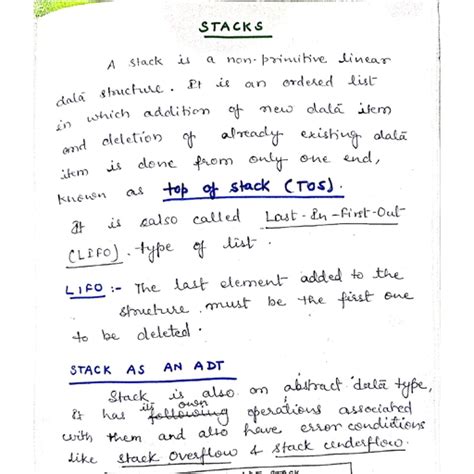 STACKS
A stack is a non-primitive linear
data structure. It is an ordered list
in which addition of new data item
and deletion of already existing data
item is done from only one end,
known as top of stack (TOS).
It is also called Last-In-First-Out
(LIFO). type of list.
LIFO :- The last element added to the
structure must be the first one
to be deleted.
STACK AS AN ADT
Stack is also an abstract data type,
It has its own following operations associated
with them and also have error conditions
like stack overflow & stack underflow.